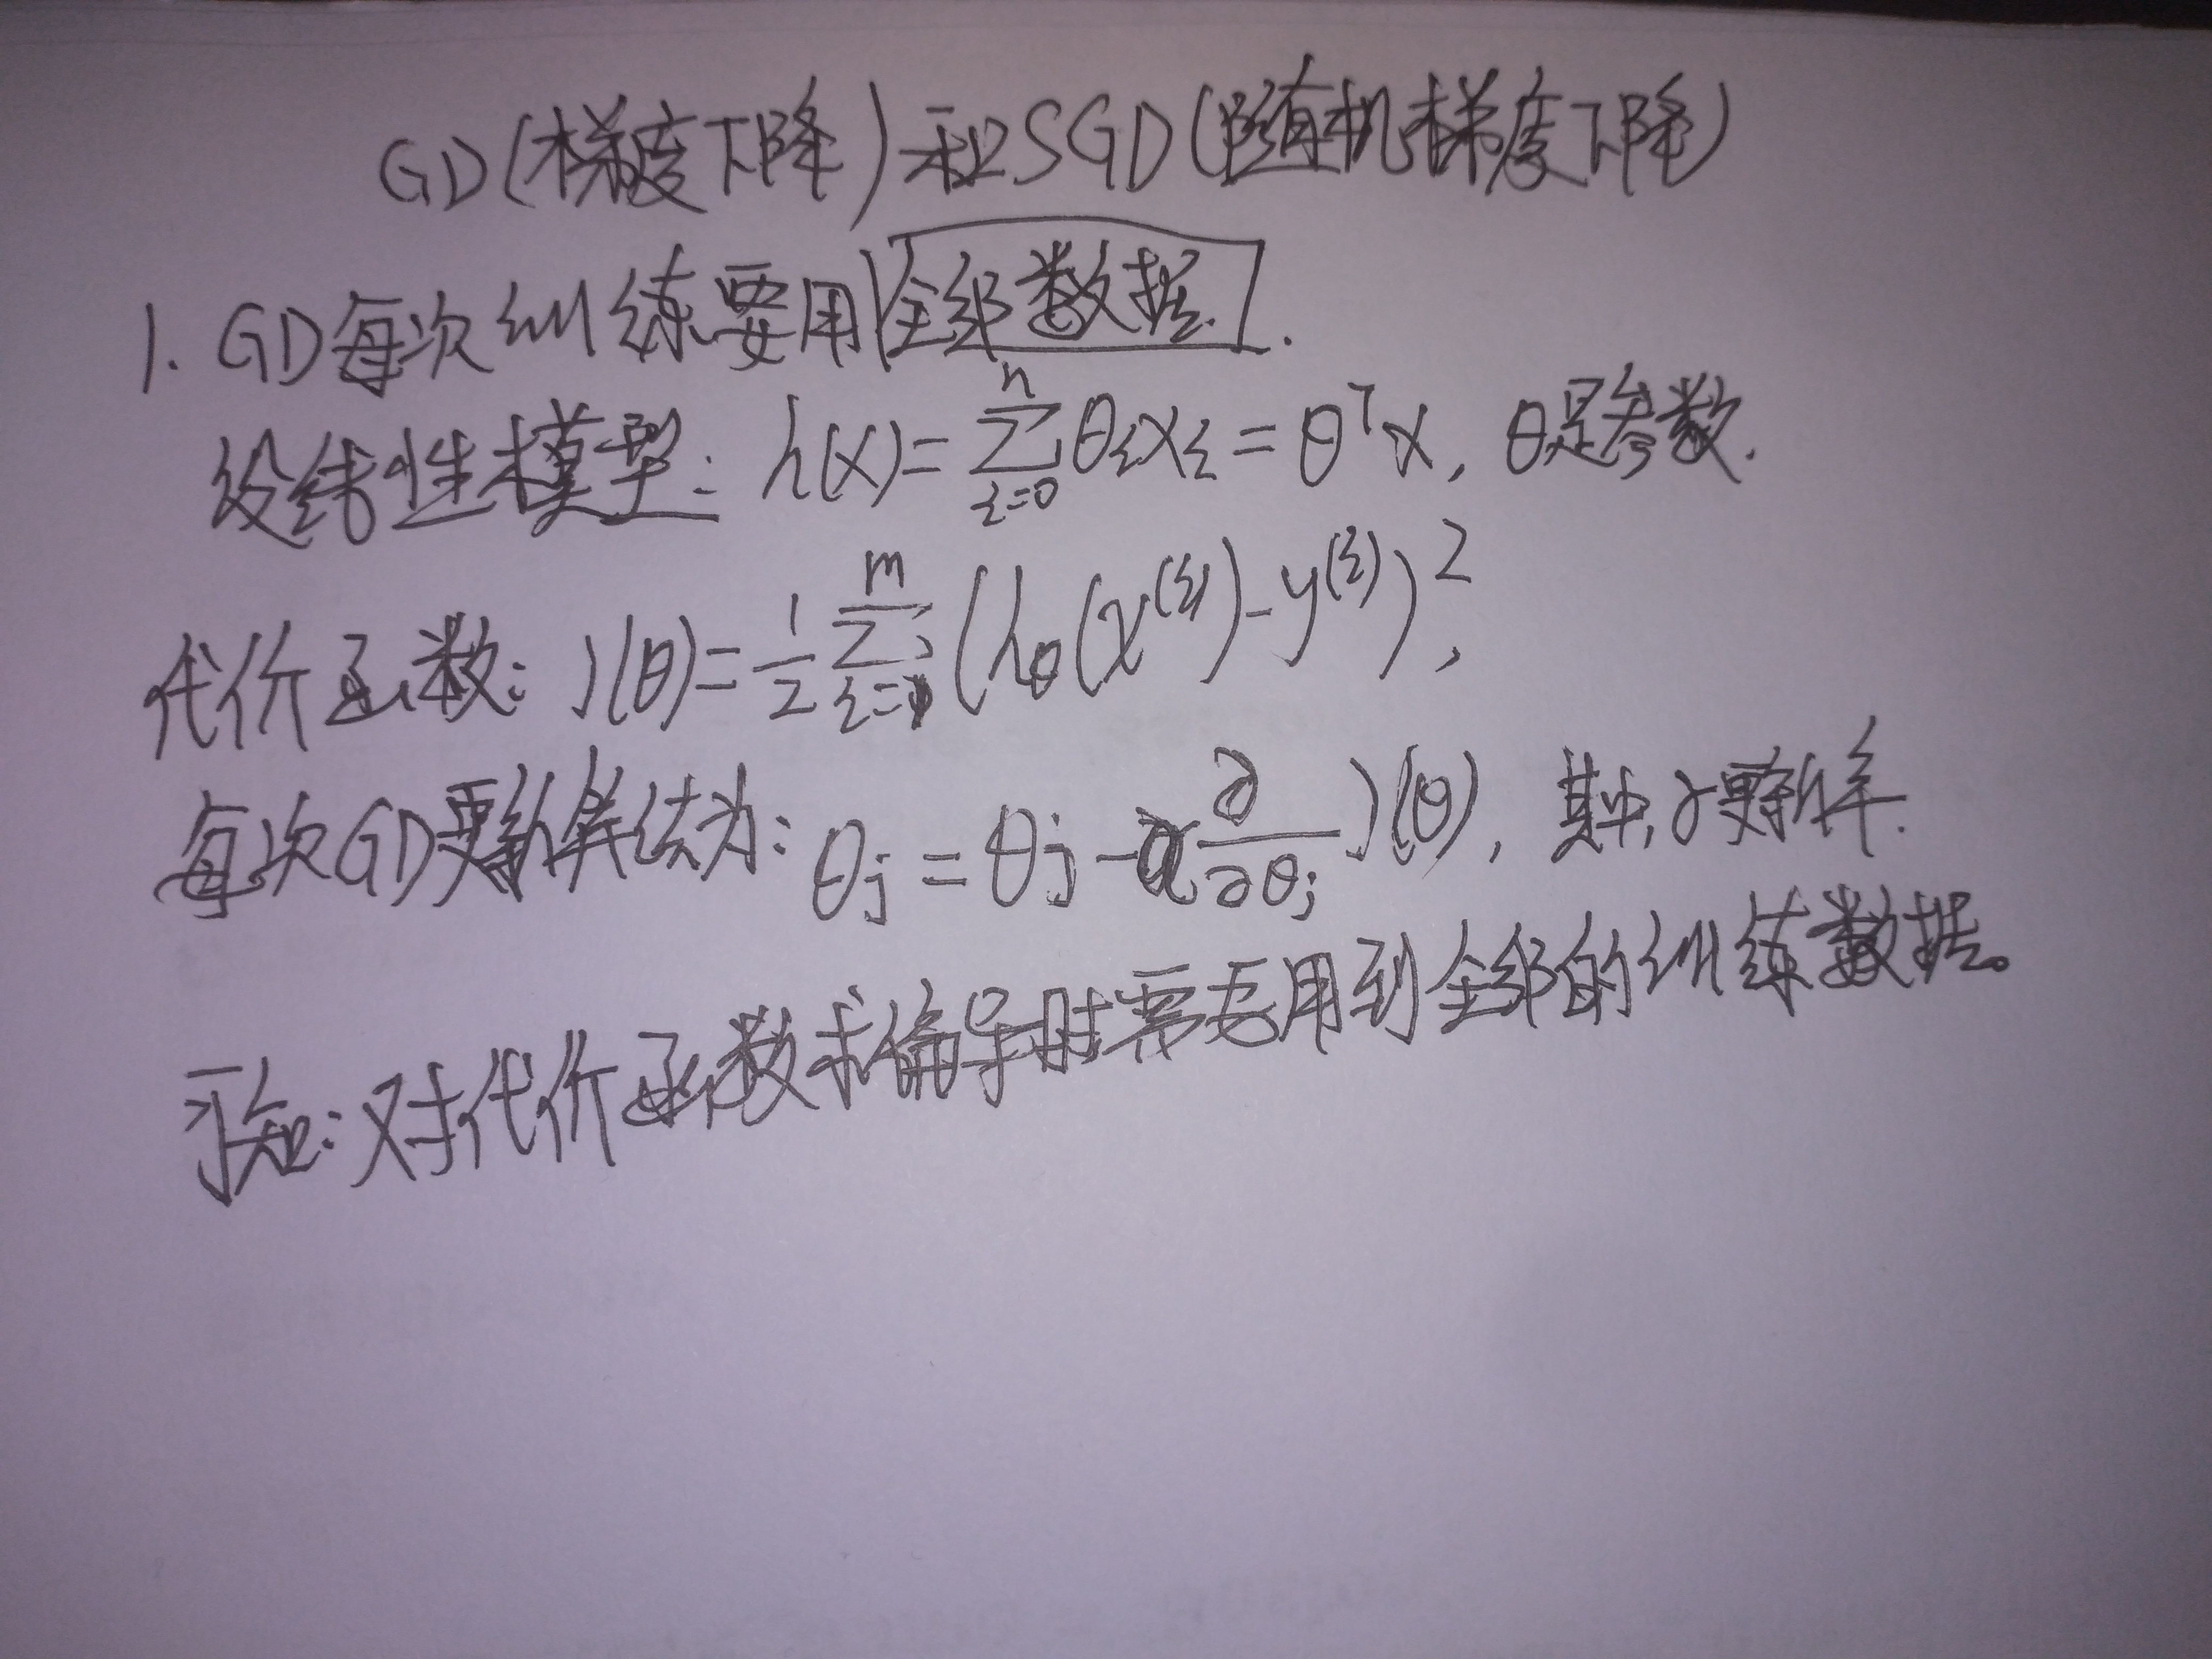 GD(梯度下降)和SGD(随机梯度下降)
1. GD每次训练要用全部数据.
设线性模型: h(x)=∑_{i=0}^{n}θ_i x_i=θ^T x, θ是参数.
代价函数: J(θ)=1/2 ∑_{i=1}^{m}(h_θ(x^{(i)})-y^{(i)})^2,
每次GD更新算法为: θ_j=θ_j-α ∂/∂θ_j J(θ), 其中,α更新率.
可知:对代价函数求偏导时需要用到全部的训练数据。